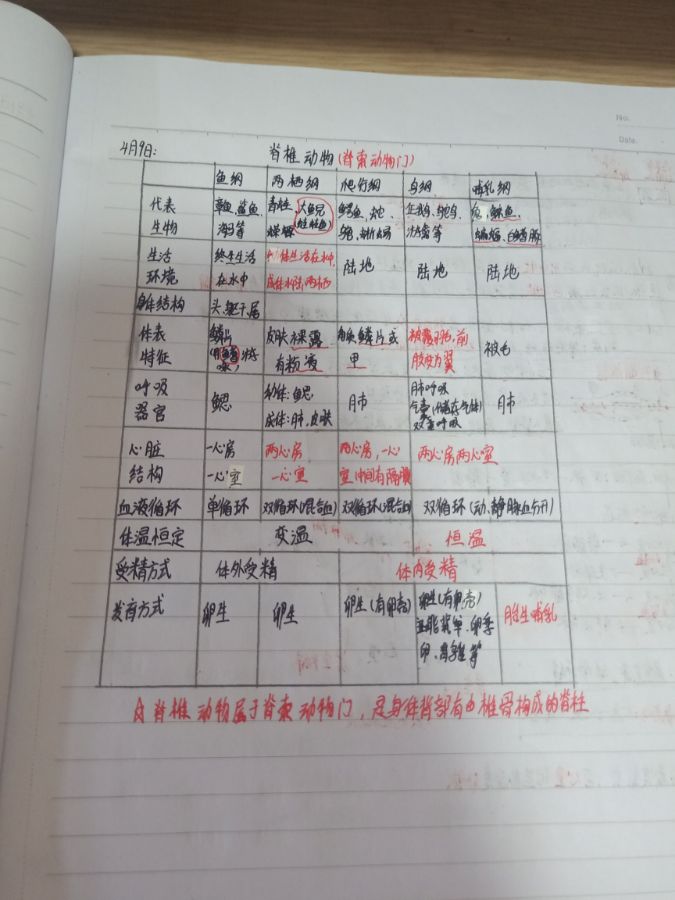 No.
Date.
4月9日: 脊椎动物(脊索动物门)
鱼纲 两栖纲 爬行纲 鸟纲 哺乳纲
代表 青蛙 大鲵 鳄鱼、蛇、 企鹅、鸵鸟 鲸鱼
生物 海马等 (娃娃鱼) 蜥蜴 等 蝙蝠、白鳍豚
生活 终生生活 幼体生活在水中, 陆地 陆地 陆地
环境 在水中 成体水陆两栖
身体结构 头、躯干、尾
体表 鳞片 皮肤裸露 角质鳞片或 被覆羽毛,前 被毛
特征 有粘液 甲 肢变为翼
呼吸 鳃 幼体:鳃 肺 肺呼吸 肺
器官 成体:肺,皮肤 气囊(储存气体)
双重呼吸
心脏 一心房 两心房 两心房,一心 两心房两心室
结构 一心室 一心室 室中间有隔膜
血液循环 单循环 双循环(混合血) 双循环(混合血) 双循环(动、静脉血分开)
体温恒定 变温 恒温
受精方式 体外受精 体内受精
发育方式 卵生 卵生 卵生(有卵壳) 卵生(有卵壳) 胎生哺乳
卵、育雏等
脊椎动物属于脊索动物门,是身体背部有由椎骨构成的脊柱